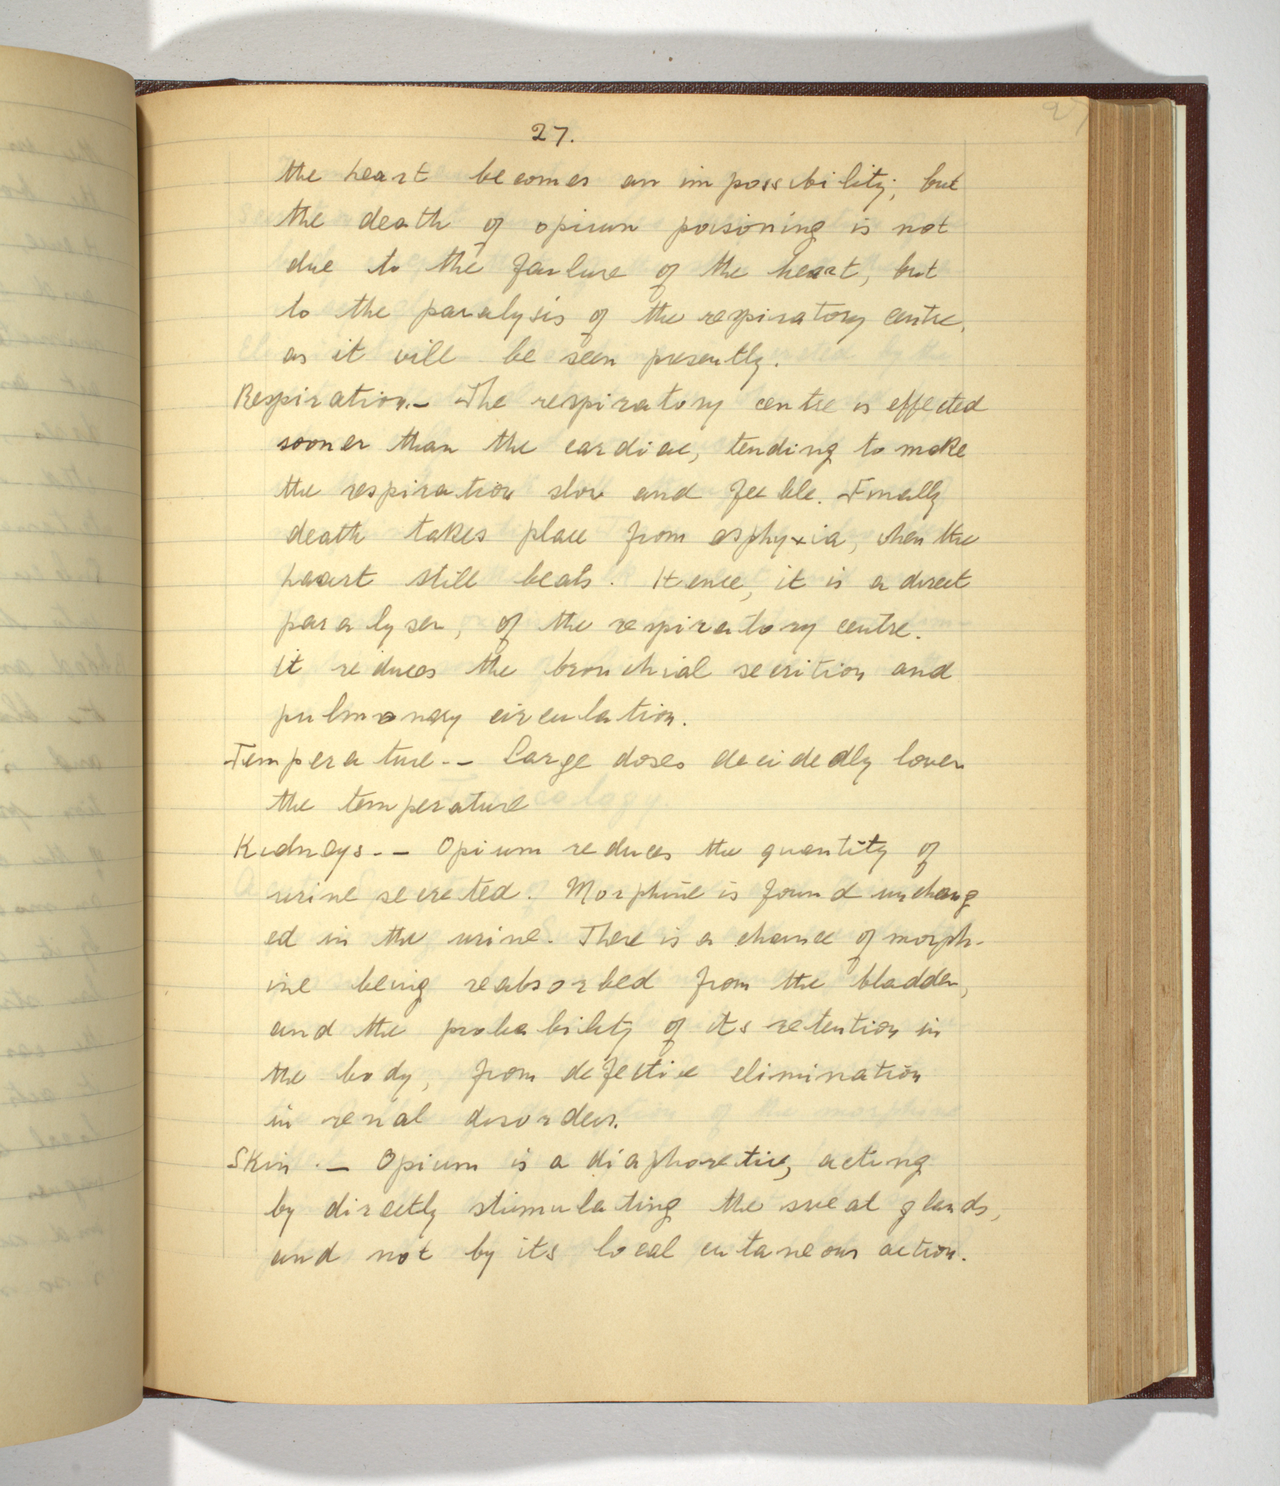 27.
the heart becomes an impossibility; but
the death of opium poisoning is not
due to the failure of the heart, but
to the paralysis of the respiratory centre,
as it will be seen presently.
Respiration.— The respiratory centre is effected
sooner than the cardiac, tending to make
the respiration slow and feeble. Finally
death takes place from asphyxia, when the
heart still beats. Hence, it is a direct
paralyser, of the respiratory centre.
It reduces the bronchial secrition and
pulmonary circulation.
Temperature.— Large doses decidedly lower
the temperature
Kidneys.— Opium reduces the quantity of
urine secreted. Morphine is found unchang
ed in the urine. There is a chance of morph-
ine being reabsorbed from the bladder,
and the probability of its retention in
the body, from defective elimination
in renal disorders.
Skin.— Opium is a diaphoretic, acting
by directly stimulating the sweat glands,
and not by its local cutaneous action.